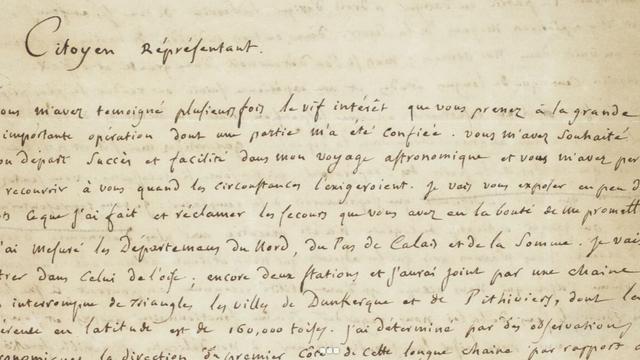 Citoyen Réprésentant.
ous m'avez temoigné plusieurs fois le vif intérêt que vous prenez à la grande
importante opération dont une partie m'a été confiée. vous m'avez souhaité
on départ succès et facilité dans mon voyage astronomique et vous m'avez per
recourir à vous quand les circonstances l'exigeroient. Je vais vous exposer en peu d
ts ce que j'ai fait et réclamer les secours que vous avez eu la bonté de me promett
'ai mesuré les Départemens du Nord, du Pas de Calais et de la Somme. Je vais
trer dans celui de l'oise; encore deux stations et j'aurai joint par une chaine
interrompue de triangles les villes de Dunkerque et de Pithiviers, dont la
érence en latitude est de 160,000 toises. j'ai déterminé par des observations
la direction du premier côté de cette longue chaine par rapport